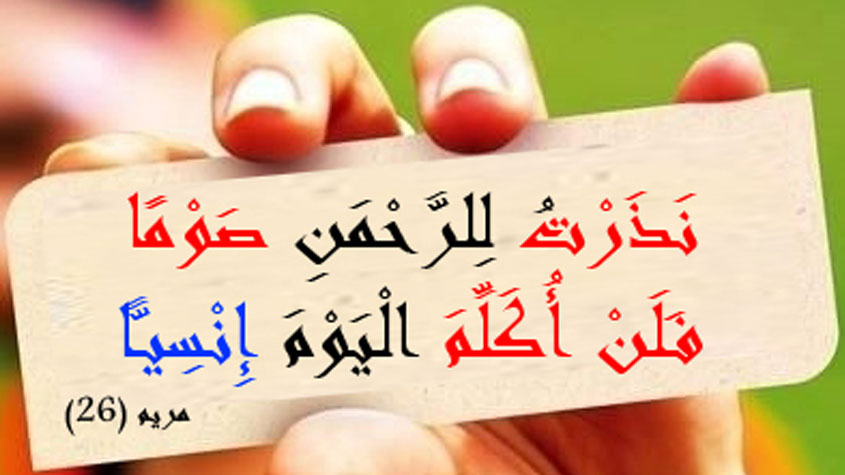 نَذَرْتُ لِلرَّحْمَنِ صَوْمًا
فَلَنْ أُكَلِّمَ الْيَوْمَ إِنْسِيًّا
مريم (26)